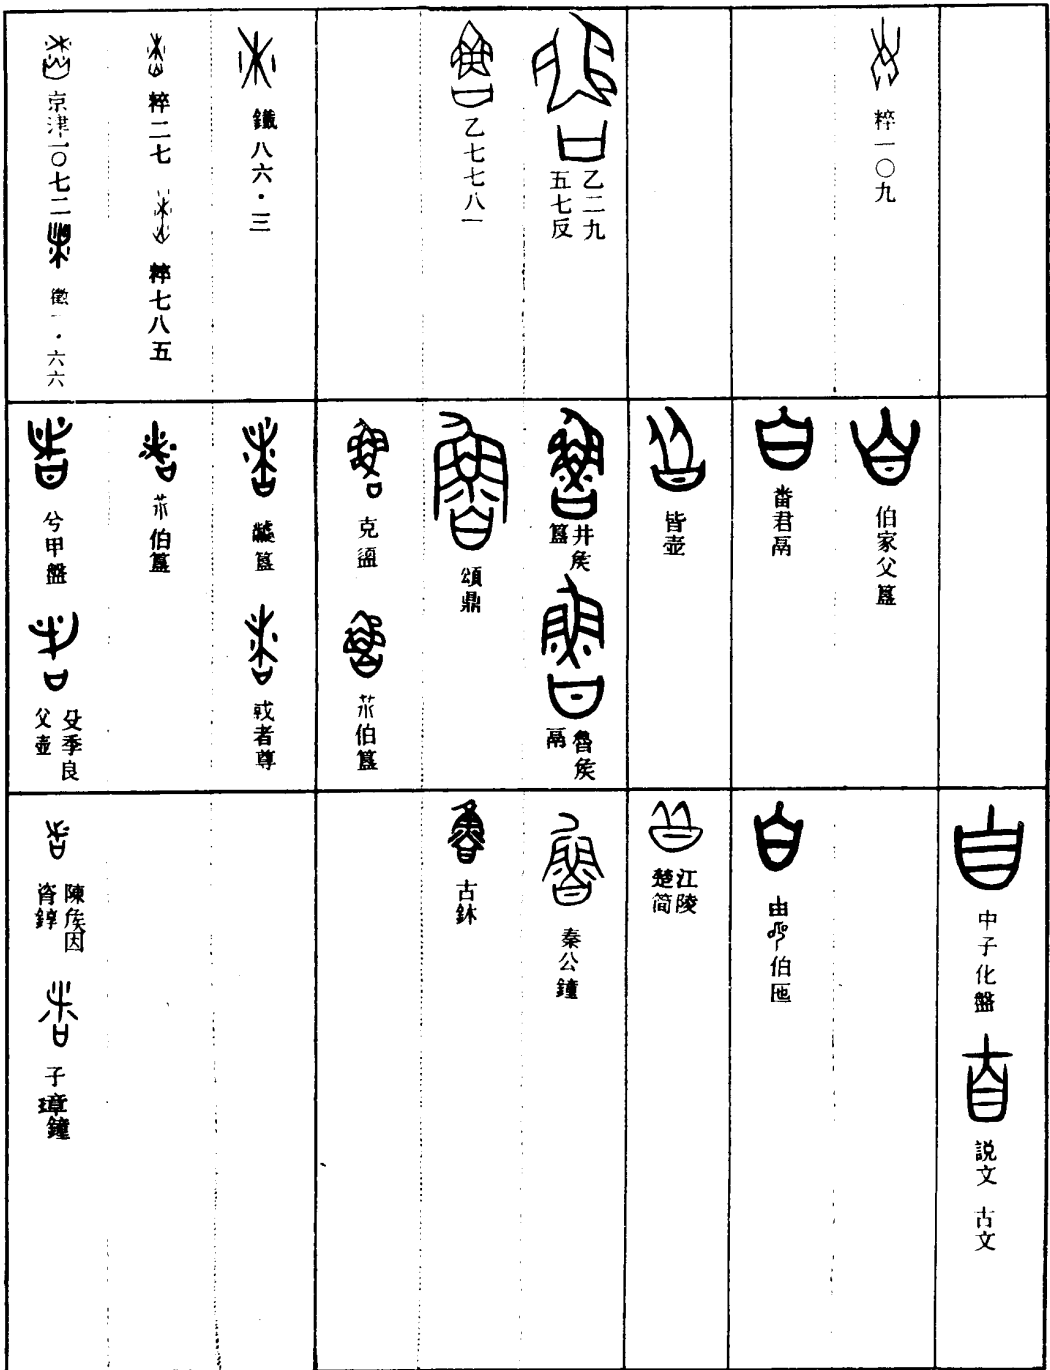 粹一〇九
乙二九
五七反
乙七七八一
鐵八六·三
粹二七
粹七八五
京津一〇七二
徵一·六六
伯家父簋
番君鬲
皆壺
井矦
簋
魯矦
鬲
頌鼎
克盨
伯簋
簋
㦰者尊
伯簋
兮甲盤
殳季良
父壺
中子化盤
説文 古文
伯匜
江陵
楚简
秦公鐘
古鉩
陳矦因
錞
子璋鐘